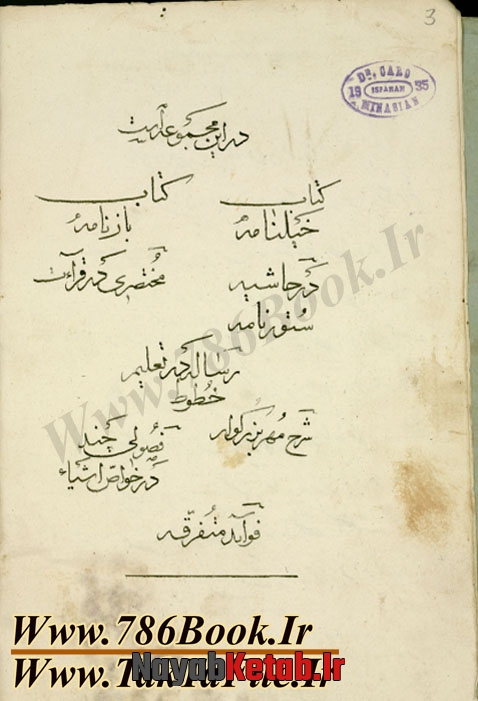 3
Dr. CARO
19 ISFAHAN 35
MINASIAN
در این مجموعه است
کتاب
خیلنامه
کتاب
بازنامه
در حاشیه
ستورنامه
مختصری در قرائت
رساله در تعلیم
خطوط
شرح مهر بزرکوار
فصولی چند
در خواص اشیاء
فوآید متفرقه
Www.786Book.Ir
Www.786Book.Ir
NayabKetab.Ir